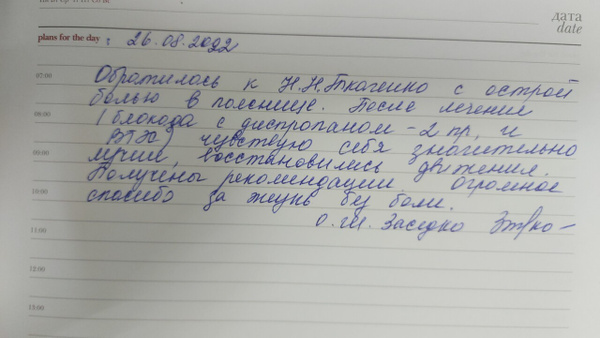 дата
date
plans for the day : 26.08.2022
07:00
Обратилась к Н.Н.Ткаченко с острой
болью в пояснице. После лечения
08:00
(блокада с диспропаном - 2 пр, и
ВТЖ) чувствую себя значительно
09:00
лучше, восстановились движения.
Получены рекомендации. Огромное
10:00
спасибо за жизнь без боли.
О.Ш. Заседко
11:00
12:00
13:00